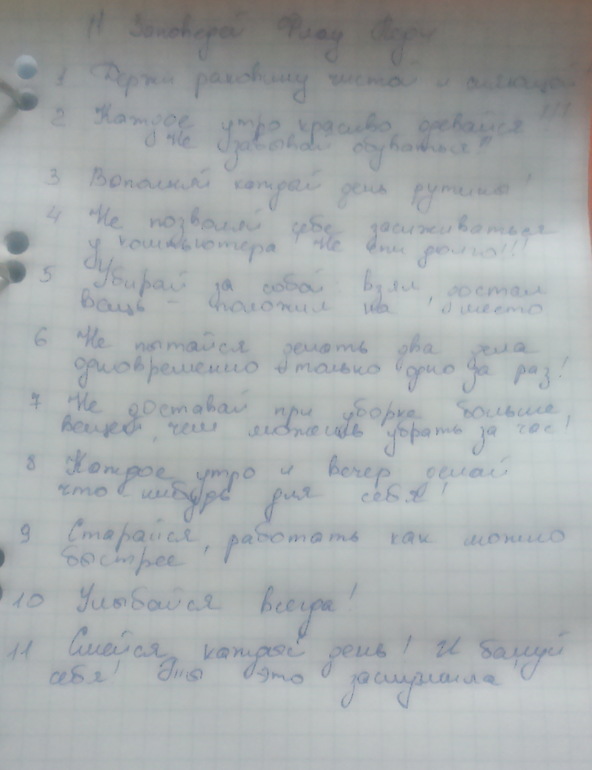 11 Заповедей Флау Леди
1 Держи раковину чистой и сияющей
2 Каждое утро красиво одевайся !!!
Не забывай обуваться!
3 Вополняй каждый день рутины!
4 Не позволяй себе засиживаться
у компьютера! Не спи долго!!!
5 Убирай за собой. Взял, достал
вещь - положил на место
6 Не пытайся делать два дела
одновременно только одно за раз!
7 Не доставай при уборке больше,
вещей, чем можешь убрать за час!
8 Каждое утро и вечер делай
что нибудь для себя!
9 Старайся, работать как можно
быстрее
10 Улыбайся всегда!
11 Смейся каждый день! И балуй
себя! Ты это заслужила